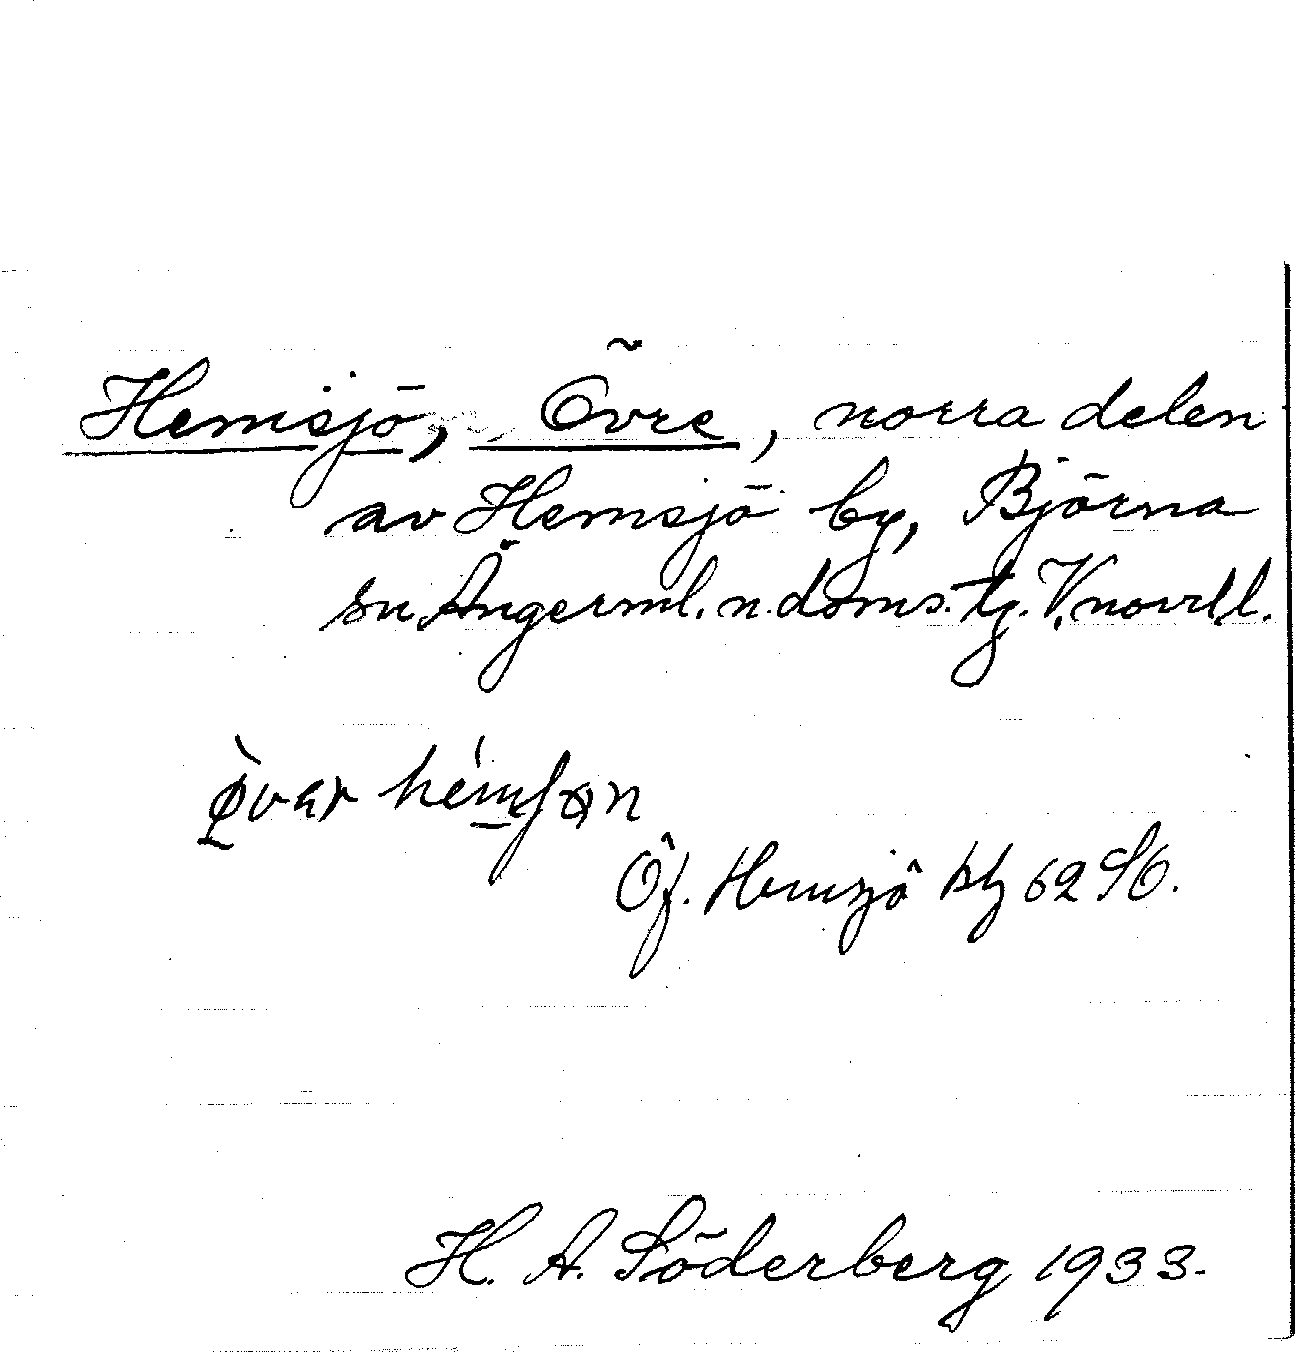 Hemsjö, Övre, norra delen
av Hemsjö by, Björna
sn Ångerml. n. doms. tg. V. norrll.
Öf. Hemsjö
H. A. Söderberg 1933.